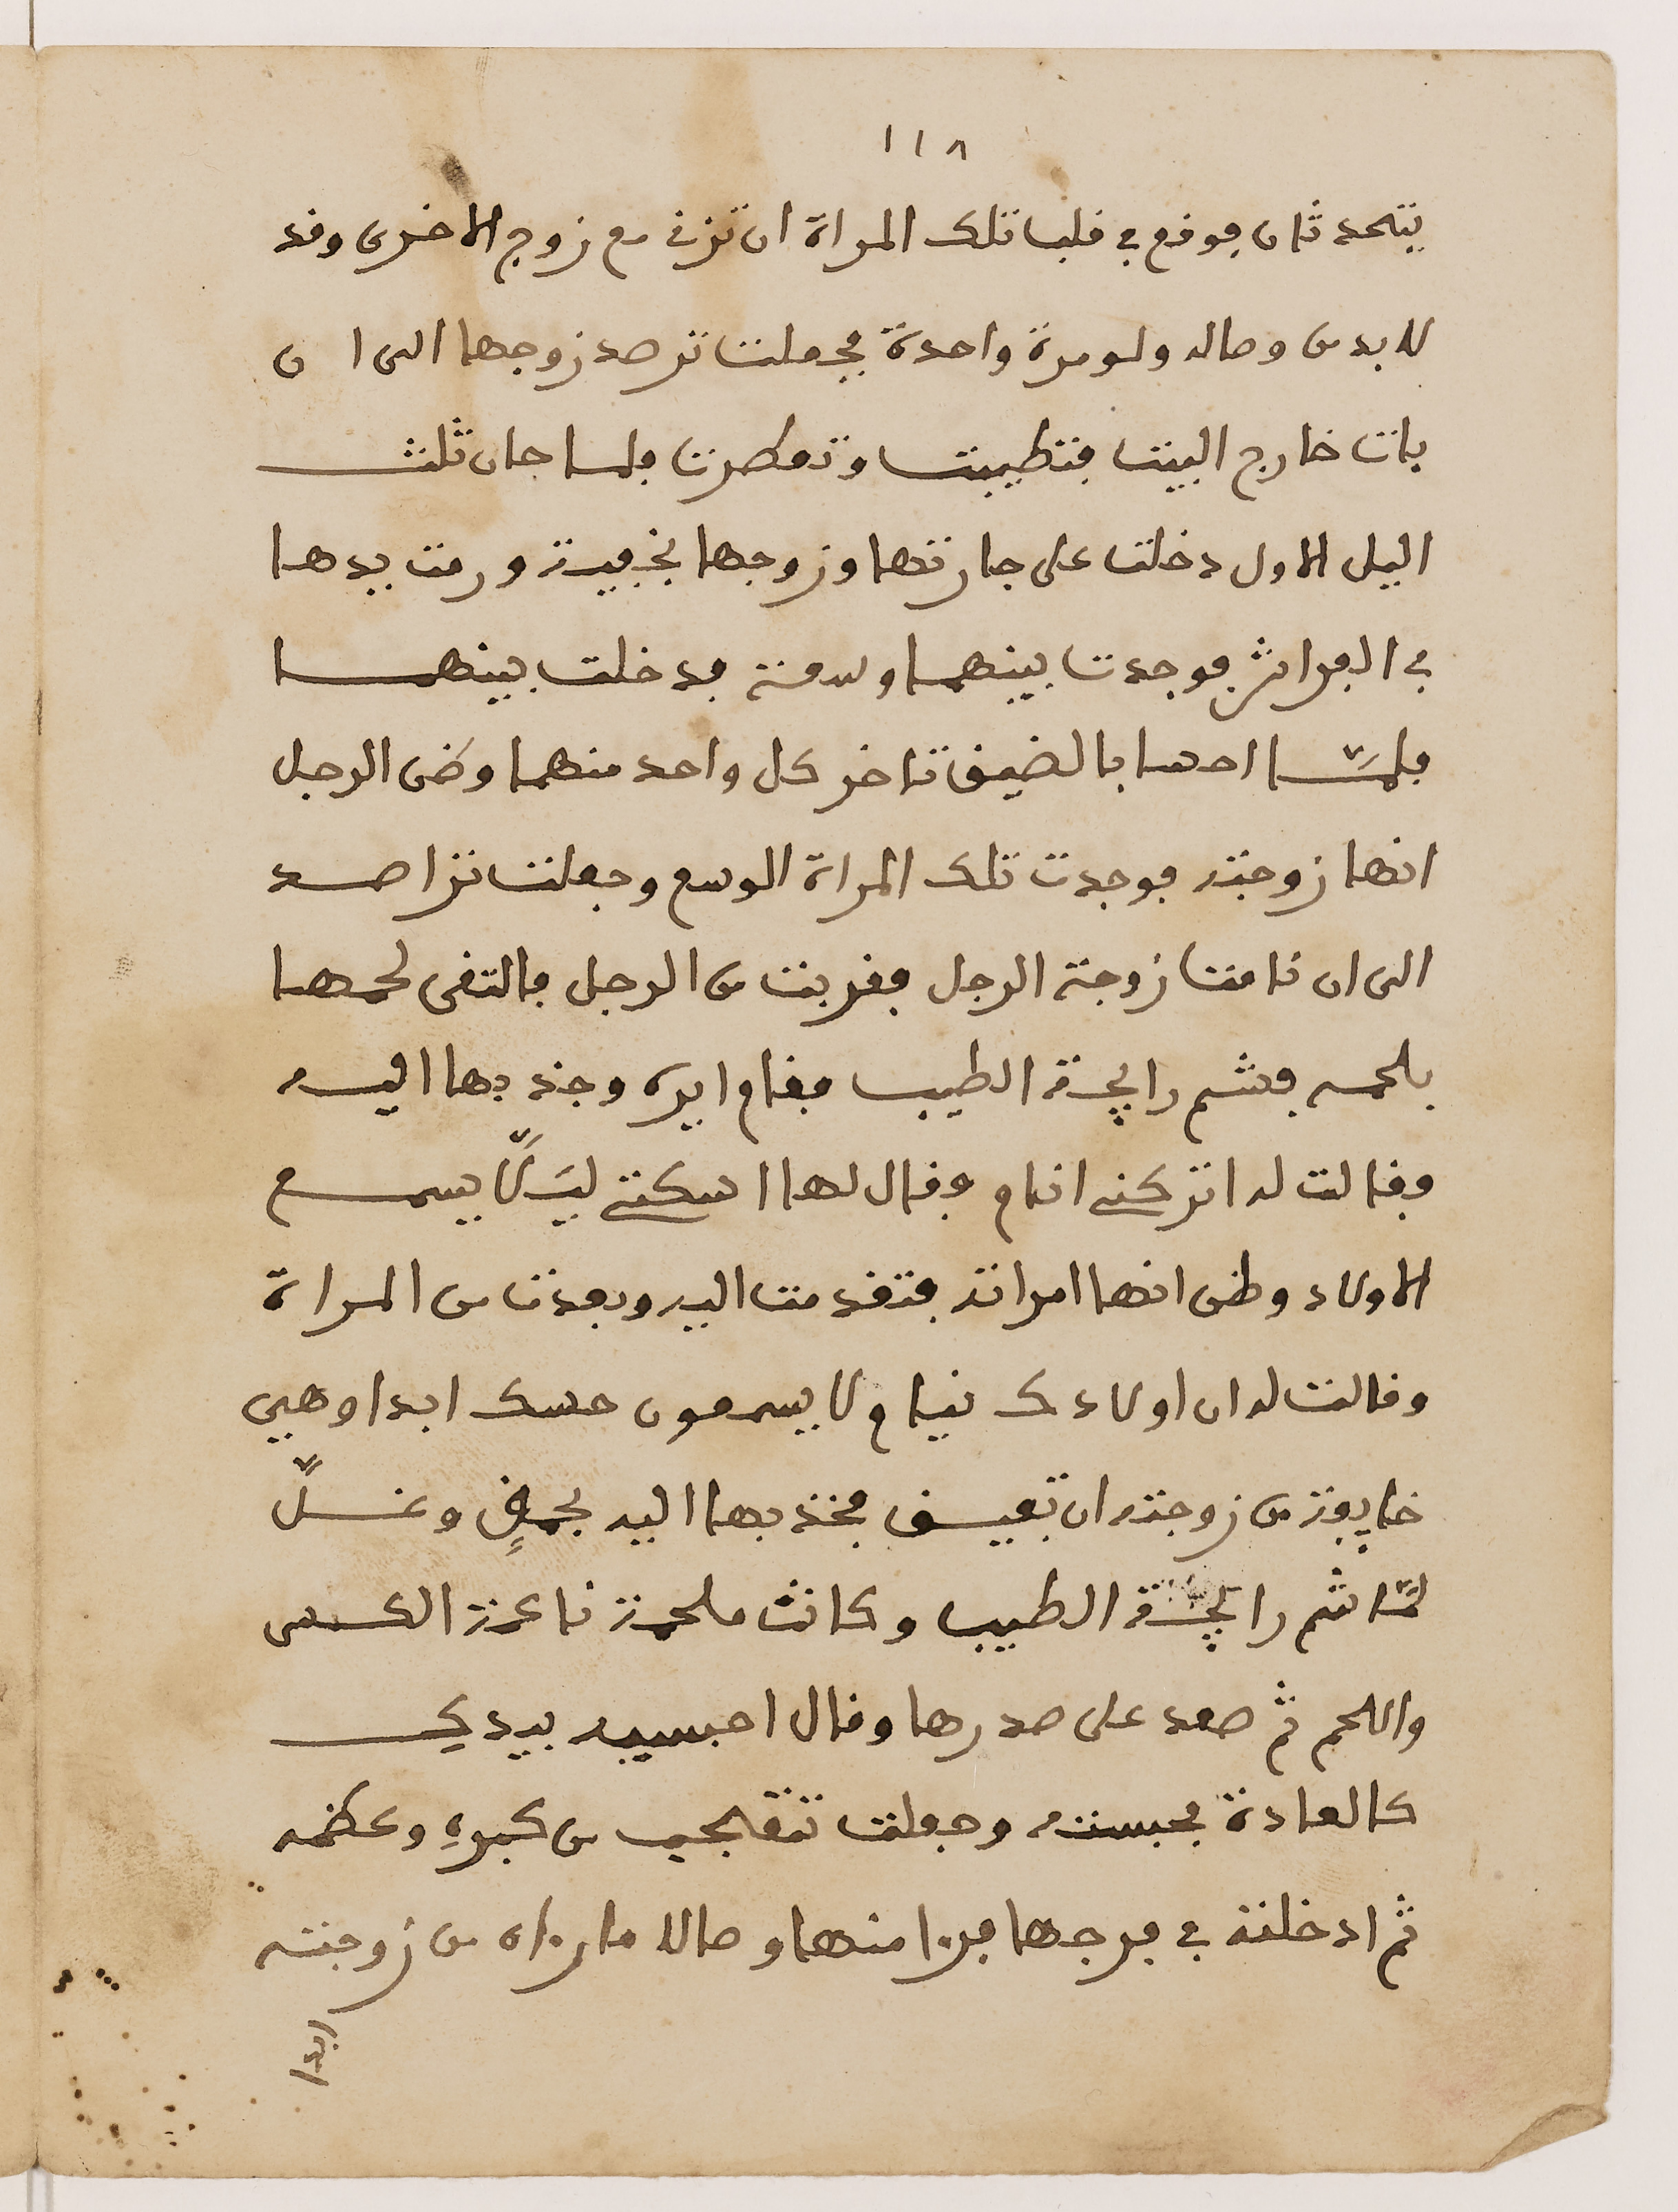 ١١٨
يتحدثان فوقع في قلب تلك المراة ان تزني مع زوج الاخرى وقد
لابد من وصاله ولو مرة واحدة فجعلت ترصد زوجها الى ان
بات خارج البيت فتطيبت وتعطرت فلما حان ثلث
اليل الاول دخلت على جارتها وزوجها بخفية ورمت يدها
في الفراش فوجدت بينهما وسعة فدخلت بينهما
فلمّا احسا بالضيق تاخر كل واحد منهما وضن الرجل
انها زوجته فوجدت تلك المراة الوسع وجعلت تراصد
الى ان نامت زوجة الرجل فقربت من الرجل فالتقى لحمها
بلحمه فشم رايحة الطيب فقام ايره وجذبها اليه
وفالت له اتركني انام فقال لها اسكتي ليَلَّا يسمع
الاولاد وظن انها امراته فتقدمت اليه وبعدت من المراة
وقالت له ان اولادك نيام لا يسمعون حسك ابدا وهي
خايفة من زوجته ان تفيق فجذبها اليه بجهلٍ وغسلًّ
لمّا شم رايحة الطيب وكانت ملحمة ناعمة الكس
واللحم ثم صعد على صدرها وقال احبسيه بيدكي
كالعادة فحبسته وجعلت تتعجب من كبرهِ وعظمه
ثم ادخلته في فرجها فرا منها وصالا مارءاه من زوجته
ابدا